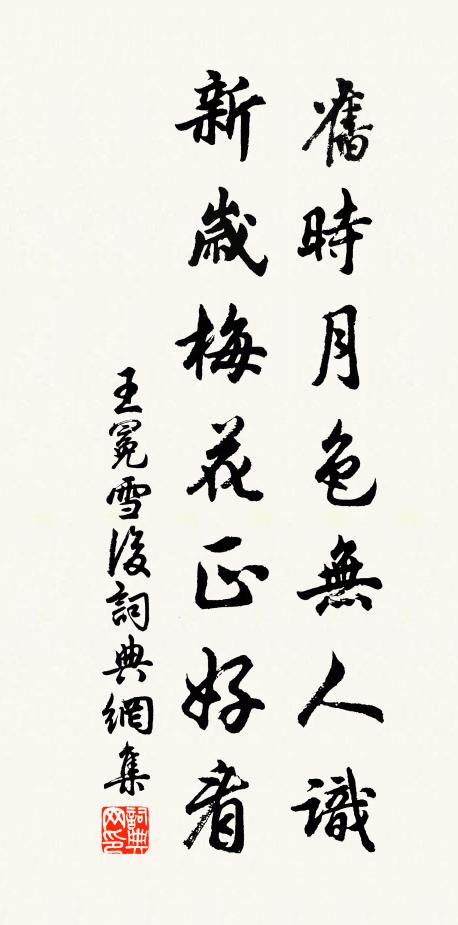 舊時月色無人識
新歲梅花正好看
王冕雪後詞典網集
詞典網印